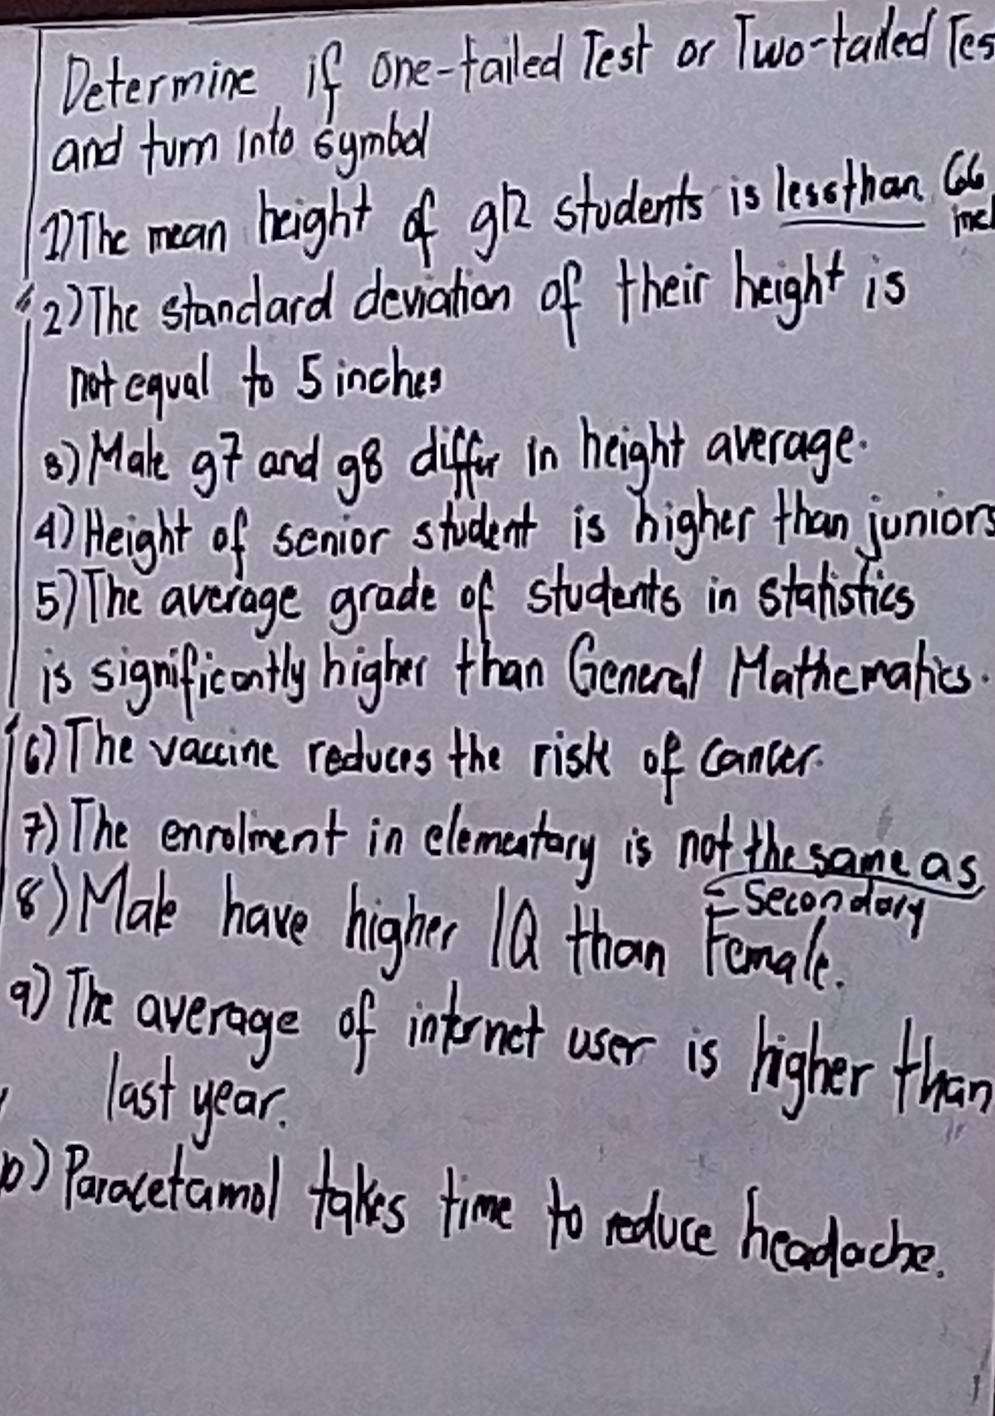 Determine if one-tailed Test or Two-tailed Tes
and turn into symbol
1) The mean height of g12 students is less than 66
inc
2) The standard deviation of their height is
not equal to 5 inches
3) Male g7 and g8 differ in height average.
4) Height of senior student is higher than juniors
5) The average grade of students in statistics
is significantly higher than General Mathematics.
6) The vaccine reduces the risk of cancer.
7) The enrolment in elementary is not the same as
Secondary
8) Male have higher IQ than Female.
9) The average of internet user is higher than
last year.
10) Paracetamol takes time to reduce headache.